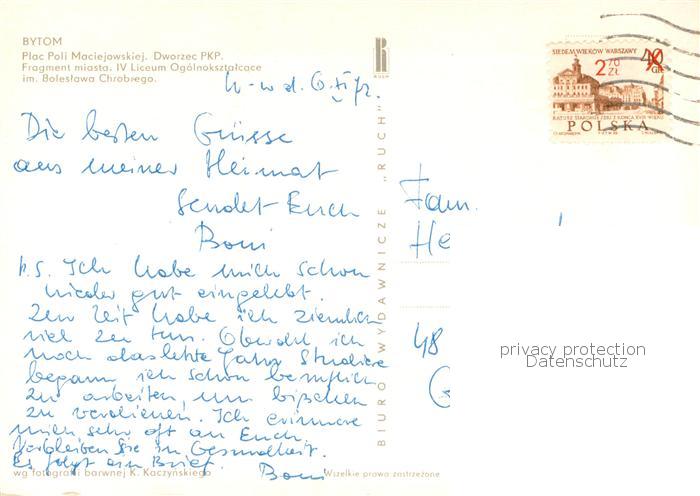 BYTOM
Plac Poli Maciejowskiej. Dworzec PKP.
Fragment miasta. IV Liceum Ogólnokształcące
im. Bolesława Chrobrego.
RUCH
SIEDEM WIEKÓW WARSZAWY
2,70 ZŁ
40 GR
RATUSZ STAROMIEJSKI Z KOŃCA XVIII WIEKU
POLSKA
BIURO WYDAWNICZE „RUCH”
Die besten Grüsse
aus meiner Heimat
sendet Euch
Boni
P.S. Ich habe mich schon
wieder gut eingelebt.
Zur Zeit habe ich ziemlich
viel zu tun. Obwohl ich
noch das letzte Jahr studiere
begann ich schon beruflich
zu arbeiten, um bißchen
zu verdienen. Ich erinnere
mich sehr oft an Euch.
Verbleiben Sie in Gesundheit.
Es folgt ein Brief.
Boni
Fam.
He
48
G
privacy protection
Datenschutz
wg fotografii barwnej K. Kaczyńskiego
Wszelkie prawa zastrzeżone